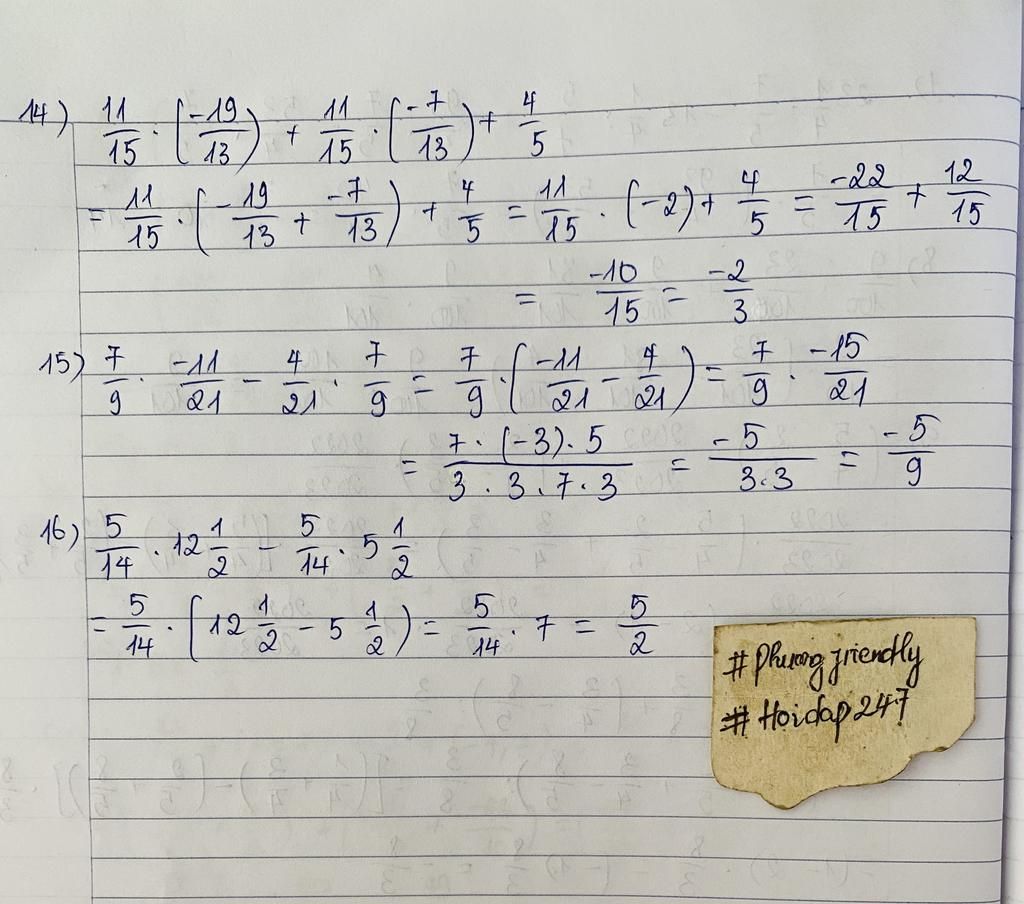 14) 11/15 . (-19/13) + 11/15 . (-7/13) + 4/5
= 11/15 . (-19/13 + -7/13) + 4/5 = 11/15 . (-2) + 4/5 = -22/15 + 12/15
= -10/15 = -2/3
15) 7/9 . -11/21 - 4/21 . 7/9 = 7/9 . (-11/21 - 4/21) = 7/9 . -15/21
= 7 . (-3) . 5 / 3 . 3 . 7 . 3 = -5 / 3.3 = -5/9
16) 5/14 . 12 1/2 - 5/14 . 5 1/2
= 5/14 . (12 1/2 - 5 1/2) = 5/14 . 7 = 5/2
# Phuongfriendly
# Hoidap247